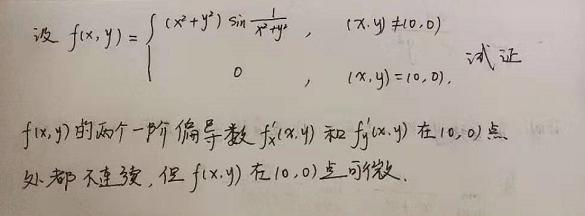 设 f(x,y) = { (x²+y²) sin 1/(x²+y²) , (x,y) ≠ (0,0)
0 , (x,y) = (0,0). 试证
f(x,y) 的两个一阶偏导数 f'x(x,y) 和 f'y(x,y) 在 (0,0) 点
处都不连续, 但 f(x,y) 在 (0,0) 点可微.